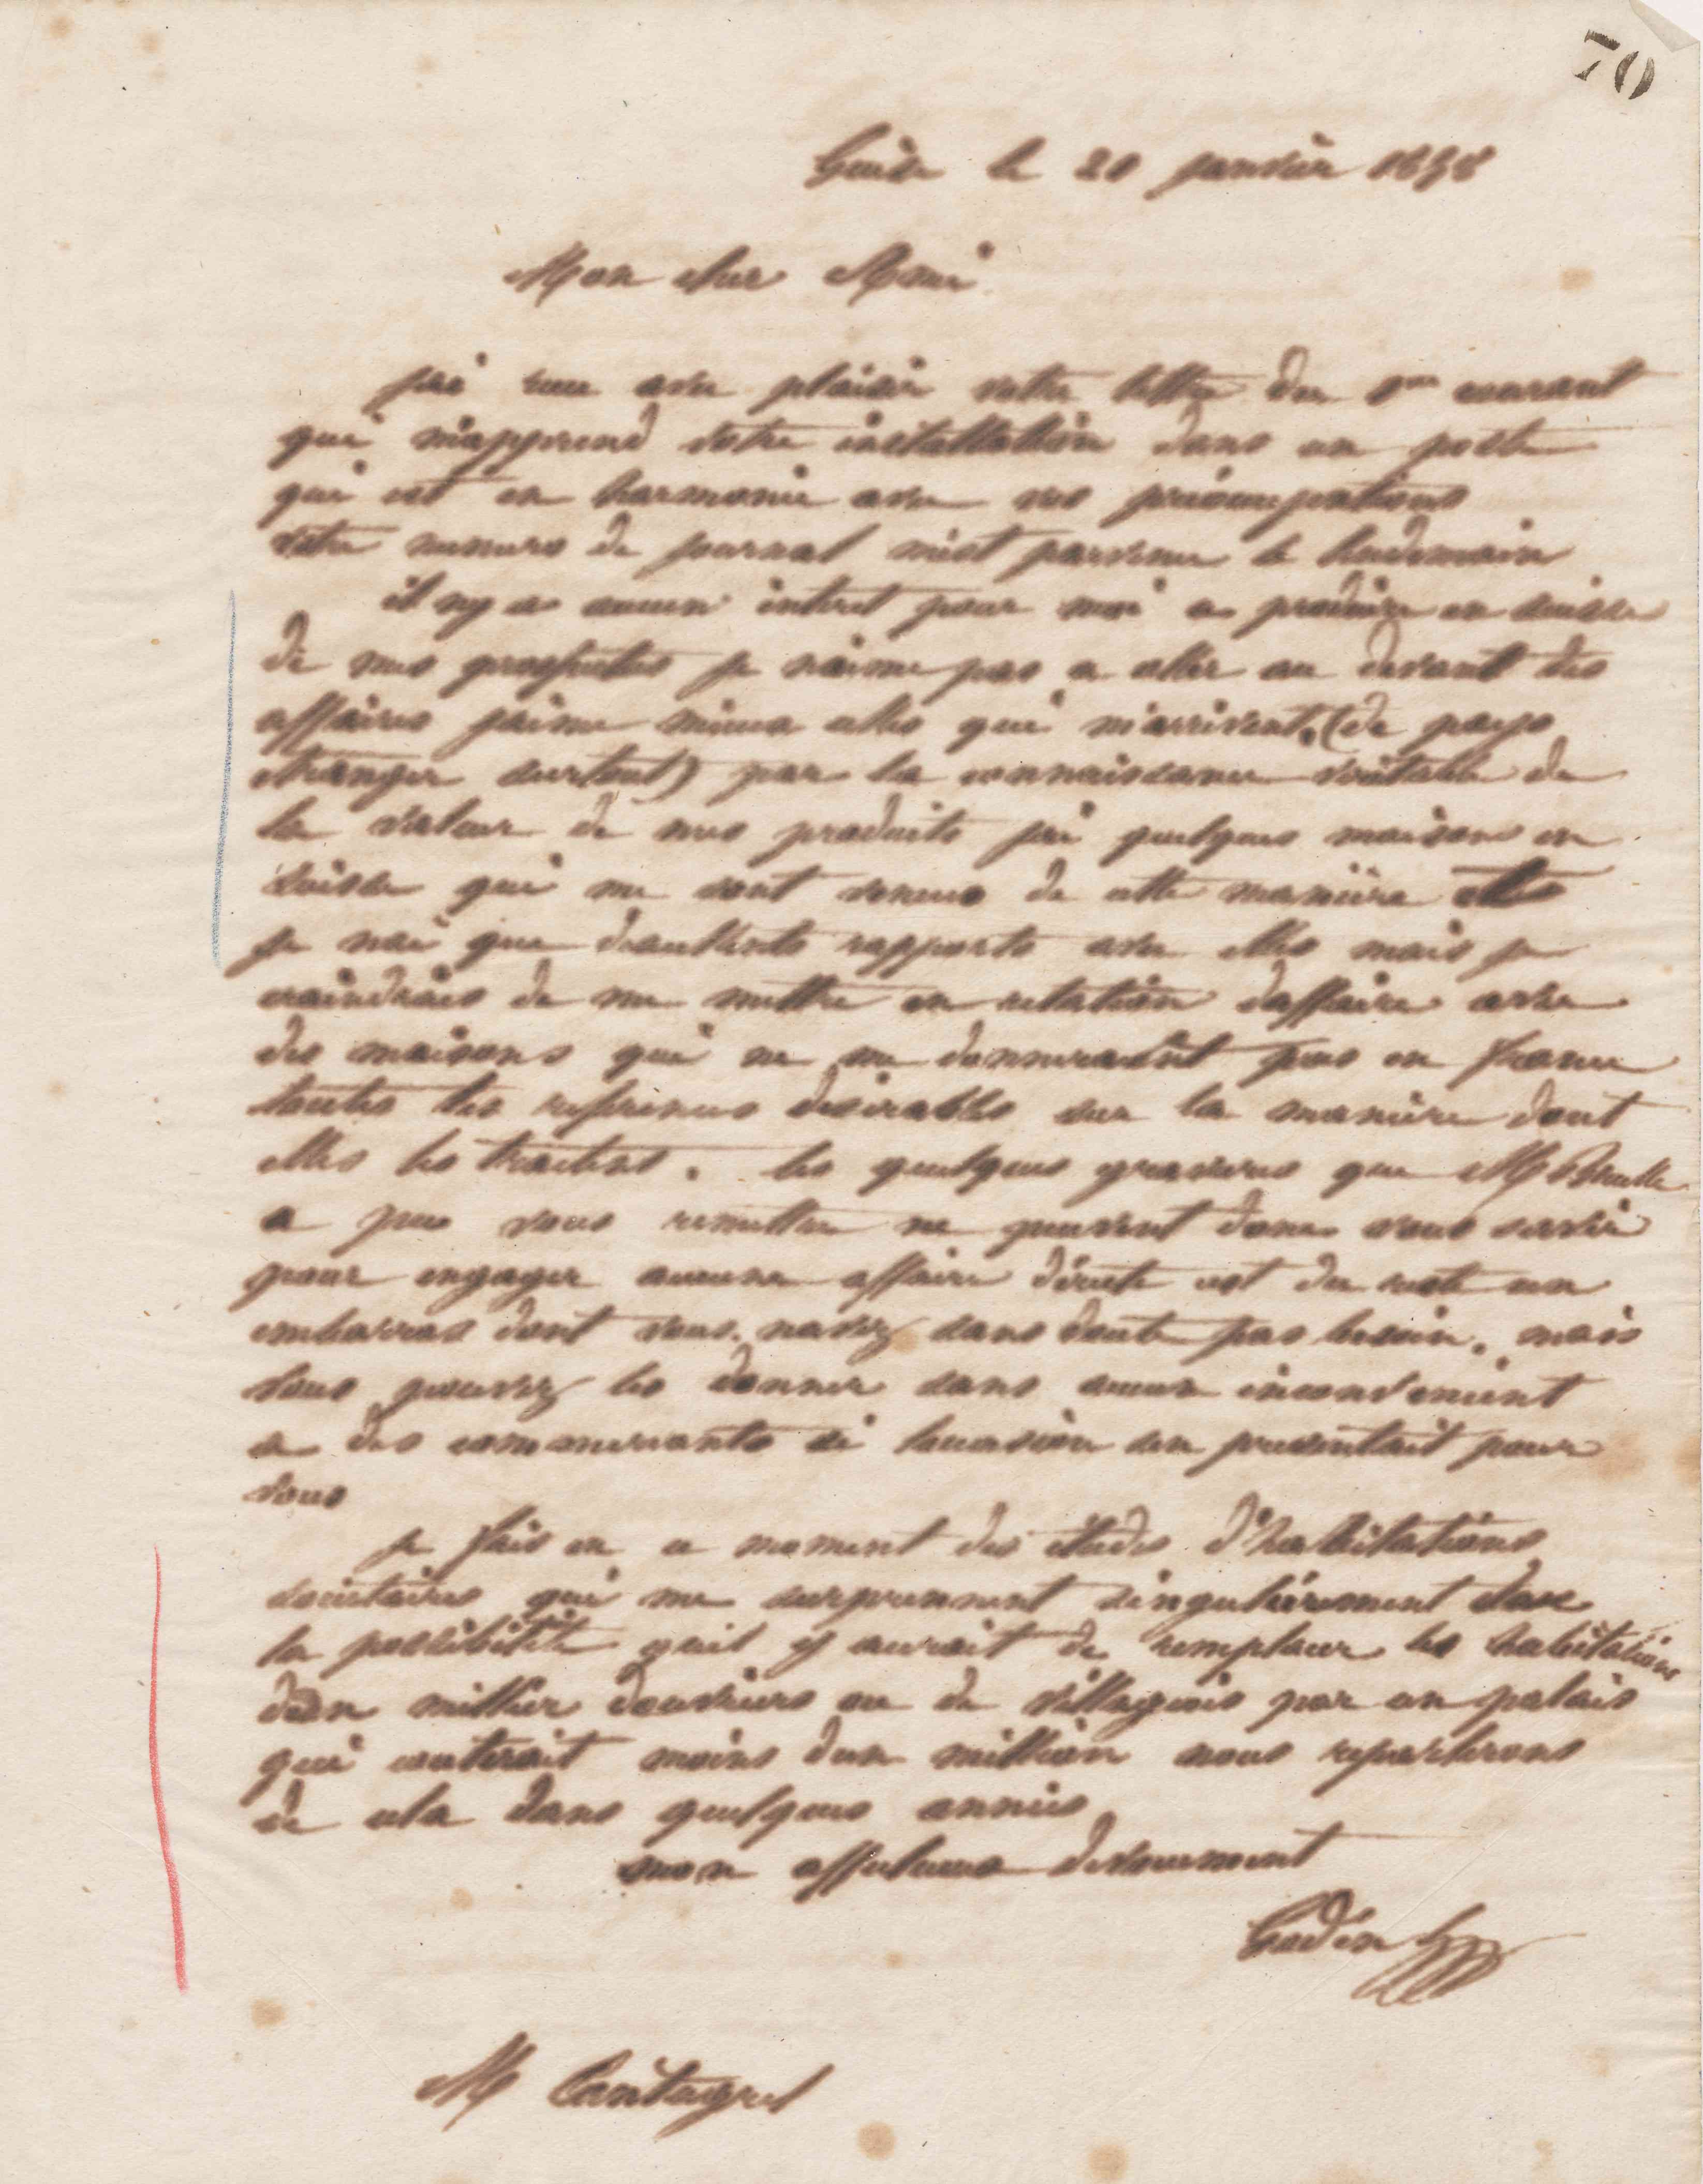 70
Guise le 20 janvier 1858
Mon cher Ami
jai recu avec plaisir votre lettre du 1er courant
qui m'apprend votre installation dans un poste
qui est en harmonie avec vos préoccupations
votre numero de journal m'est parvenu le lendemain
il ny a aucun interet pour moi a produire en suisse
de mes prospectus je n'aime pas a aller au devant des
affaires jaime mieux celles qui m'arrivent (de pays
etranger surtout) par la connaissance veritable de
la valeur de mes produits jai quelques maisons en
Suisse qui me sont venues de cette manière
je nai que dexcellents rapports avec elles mais je
craindrais de me mettre en relation daffaire avec
des maisons qui ne me donneraient pas en france
toutes les references desirables sur la maniere dont
elles les traitent. les quelques gravures que M Brulle
a pu vous remettre ne peuvent donc vous servir
pour engager aucune affaire directe cest du reste un
embarras dont vous navez sans doute pas besoin. mais
vous pouvez les donner sans aucun inconvenient
a des commercants si loccasion sen presentait pour
vous
je fais en ce moment des études d'habitations
societaires qui me surprennent singulièrement dans
la possibilité quil y aurait de remplacer les habitations
dun millier douvriers ou de villageois par un palais
qui couterait moins dun million nous reparlerons
de cela dans quelques années
mon affectueux devouement
Godin
M Cantagrel